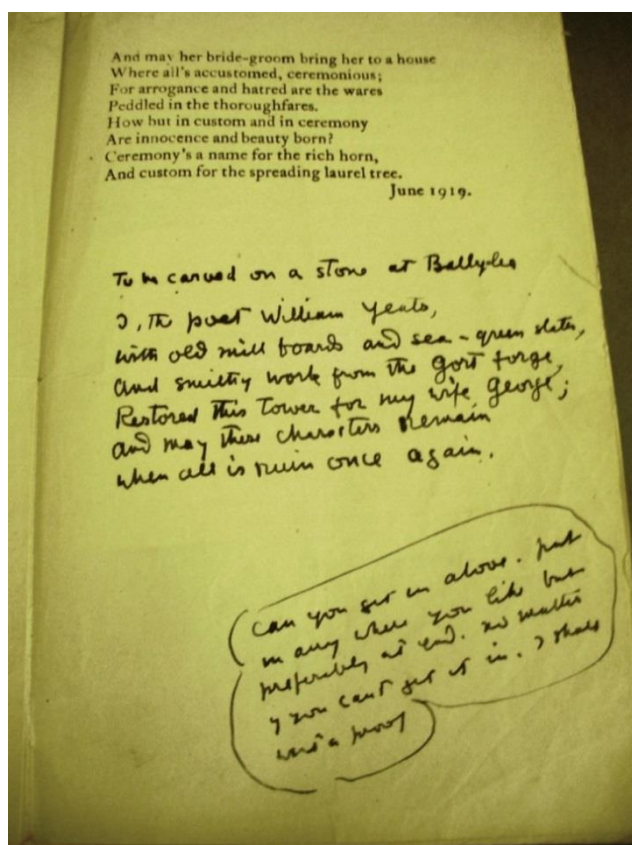 And may her bride-groom bring her to a house
Where all's accustomed, ceremonious;
For arrogance and hatred are the wares
Peddled in the thoroughfares.
How but in custom and in ceremony
Are innocence and beauty born?
Ceremony's a name for the rich horn,
And custom for the spreading laurel tree.
June 1919.
To be carved on a stone at Ballylee
I, the poet William Yeats,
with old mill boards and sea-green slates,
and smithy work from the Gort forge,
Restored this Tower for my wife George;
and may these characters remain
when all is ruin once again.
Can you get in above. put
in any where you like but
preferably at end. no matter
if you cant get it in. I shall
want a proof